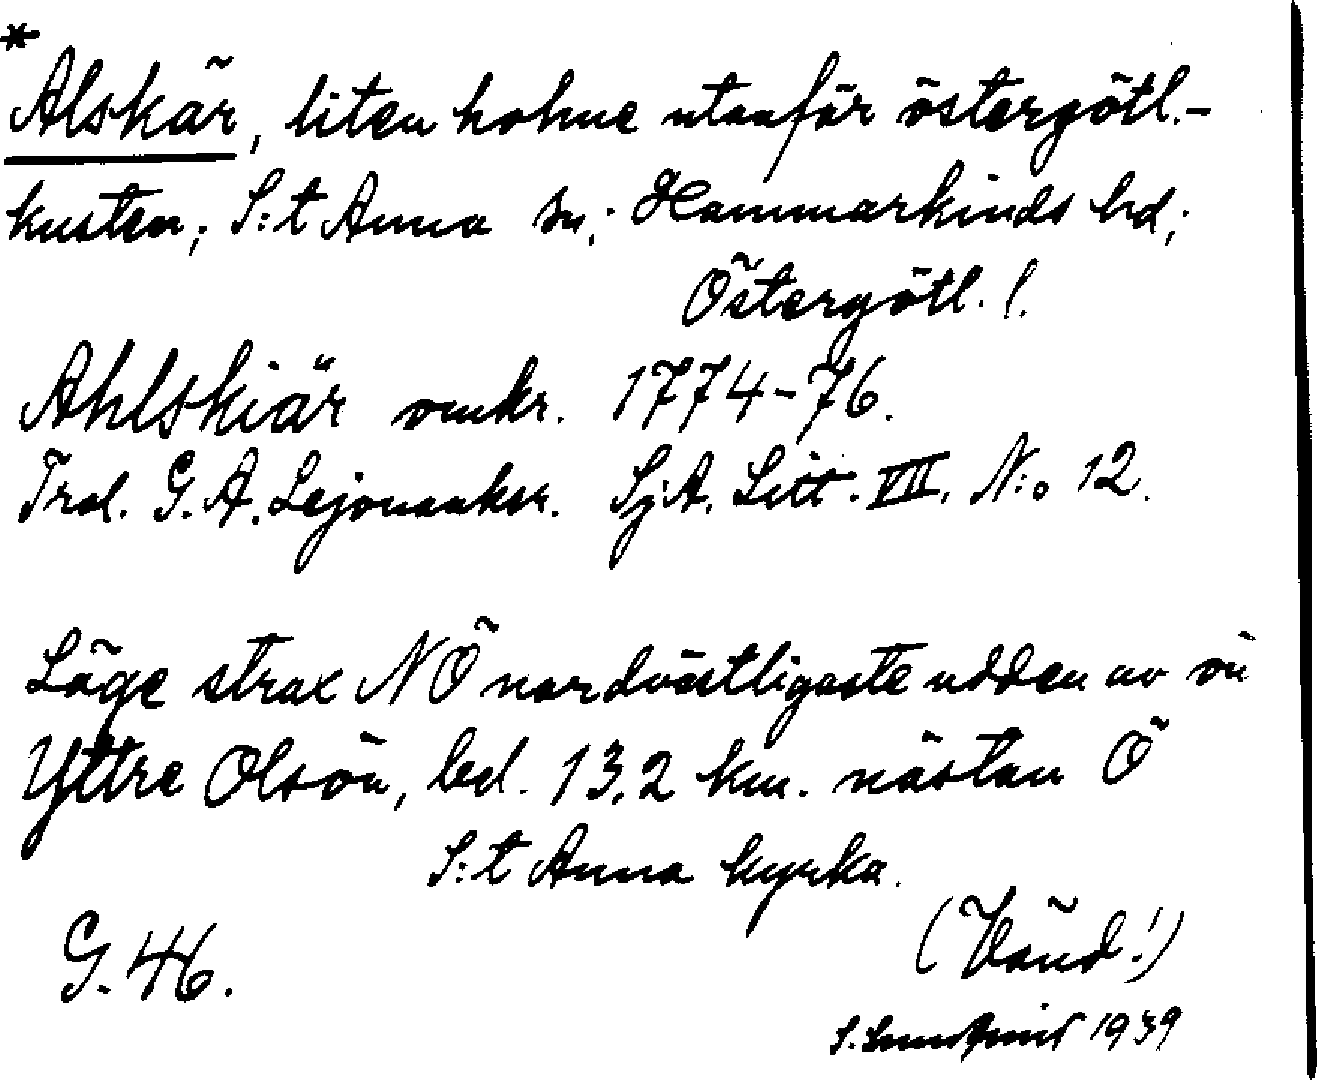 *Alskär, liten holme utanför östergötl.-
kusten; S:t Anna sn; Hammarkinds hd;
Östergötl. l.
Ahlskiär omkr. 1774-76.
Trol. G. A. Lejonankar. Sj.A. Litt. VII. N:o 12.
Läge strax NÖ nordvästligaste udden av ön
Yttre Olsön, bel. 13,2 km. nästan Ö
S:t Anna kyrka.
(Vänd!)
G. 46.
S. 1939